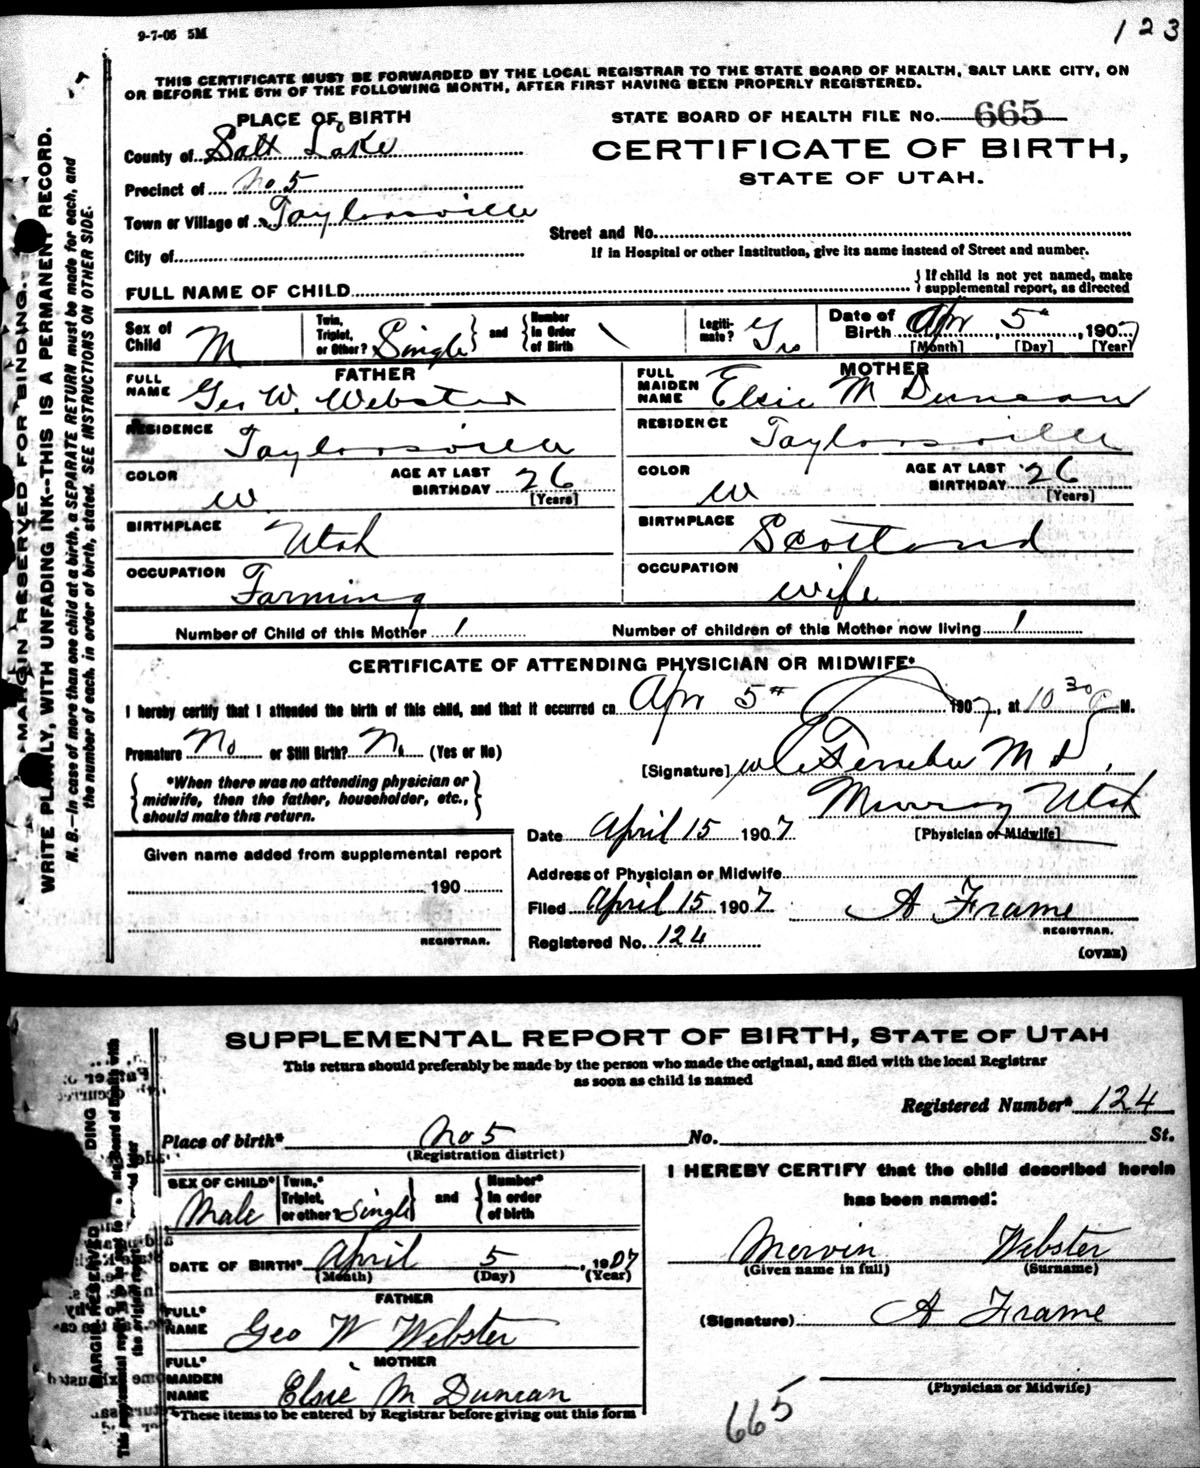 9-7-06 5M
123
THIS CERTIFICATE MUST BE FORWARDED BY THE LOCAL REGISTRAR TO THE STATE BOARD OF HEALTH, SALT LAKE CITY, ON
OR BEFORE THE 5TH OF THE FOLLOWING MONTH, AFTER FIRST HAVING BEEN PROPERLY REGISTERED.
PLACE OF BIRTH
County of Salt Lake
Precinct of No 5
Town or Village of Taylorsville
City of
STATE BOARD OF HEALTH FILE No. 665
CERTIFICATE OF BIRTH,
STATE OF UTAH.
Street and No.
If in Hospital or other Institution, give its name instead of Street and number.
FULL NAME OF CHILD
If child is not yet named, make
supplemental report, as directed
Sex of Child M
Twin, Triplet, or Other? Single and Number in Order of Birth
Legitimate? Yes
Date of Birth Apr 5th, 1907
[Month] [Day] [Year]
FATHER
FULL NAME Geo W. Webster
RESIDENCE Taylorsville
COLOR W
AGE AT LAST BIRTHDAY 26 [Years]
BIRTHPLACE Utah
OCCUPATION Farming
MOTHER
FULL MAIDEN NAME Elsie M Duncan
RESIDENCE Taylorsville
COLOR W
AGE AT LAST BIRTHDAY 26 [Years]
BIRTHPLACE Scotland
OCCUPATION wife
Number of Child of this Mother 1
Number of children of this Mother now living 1
CERTIFICATE OF ATTENDING PHYSICIAN OR MIDWIFE*
I hereby certify that I attended the birth of this child, and that it occurred on Apr 5th 1907, at 10 30 M.
Premature No or Still Birth? No (Yes or No)
*When there was no attending physician or
midwife, then the father, householder, etc.,
should make this return.
[Signature] M D,
Murray Utah
[Physician or Midwife]
Date April 15 1907
Given name added from supplemental report
190
REGISTRAR.
Address of Physician or Midwife
Filed April 15 1907 A Frame
REGISTRAR.
Registered No. 124
(OVER)
MARGIN RESERVED FOR BINDING.
WRITE PLAINLY, WITH UNFADING INK--THIS IS A PERMANENT RECORD.
N. B.—In case of more than one child at a birth, a SEPARATE RETURN must be made for each, and
the number of each, in order of birth, stated. SEE INSTRUCTIONS ON OTHER SIDE.
SUPPLEMENTAL REPORT OF BIRTH, STATE OF UTAH
This return should preferably be made by the person who made the original, and filed with the local Registrar
as soon as child is named
Registered Number* 124
Place of birth* No 5 No. St.
(Registration district)
SEX OF CHILD* Male
Twin,* Triplet, or other Single and Number* in order of birth
DATE OF BIRTH* April 5, 1907
(Month) (Day) (Year)
FATHER
FULL* NAME Geo W Webster
MOTHER
FULL* MAIDEN NAME Elsie M Duncan
*These items to be entered by Registrar before giving out this form
I HEREBY CERTIFY that the child described herein
has been named:
Mervin Webster
(Given name in full) (Surname)
(Signature) A Frame
(Physician or Midwife)
665